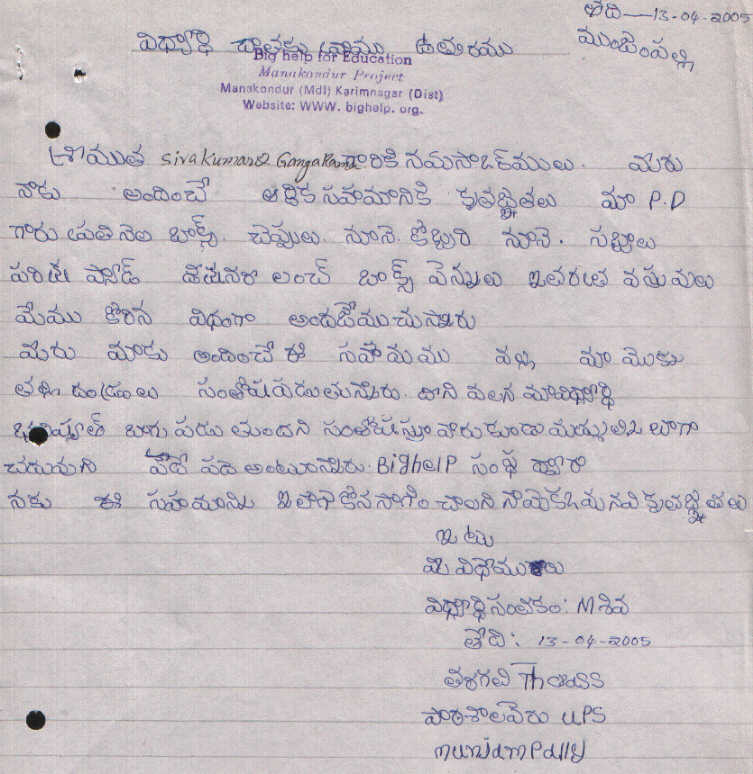 తేది—13-04-2005
ముంజంపల్లి
విధ్యార్థి వ్రాయు ఉత్తరము
Big help for Education
Manakondur Project
Manakondur (Mdl) Karimnagar (Dist)
Website: WWW. bighelp. org.
శ్రీముత sivakumar& GangaRam గారికి నమస్కారములు. మీరు
నాకు అందించే ఆర్థిక సహాయానికి కృతజ్ఞతలు మా P.D
గారు ప్రతి నెల బుక్స్. చెప్పులు. నూనె. కొబ్బరి నూనె. సబ్బులు
పరిక్ష ప్యాడ్ లంచ్ బాక్స్ పెన్నులు ఇతరత్ర వస్తువులు
మేము కోరిన విధంగా అందజేయుచున్నారు
మీరు మాకు అందించే ఈ సహాయము వల్ల మా యొక్క
తల్లి దండ్రులు సంతోషపడుతున్నారు. దాని వలన మా విధ్యార్థి
భవిష్యత్ బాగు పడు తుందని సంతోషిస్తూ వారు కూడా మమ్ములను బాగా
చదువుకో పదే పదే అంటున్నారు. BighelP సంస్థ ద్వారా
నకు ఈ సహయాన్ని ఇలాగే కొనసాగించాలని నాయొక్క మనవి కృతజ్ఞతలు
ఇట్లు
మీ విధేయురాలు
విధ్యార్థి సంతకం: M శివ
తేది: 13-04-2005
తరగతి Th class
పాఠశాల పేరు UPS
munjamPally